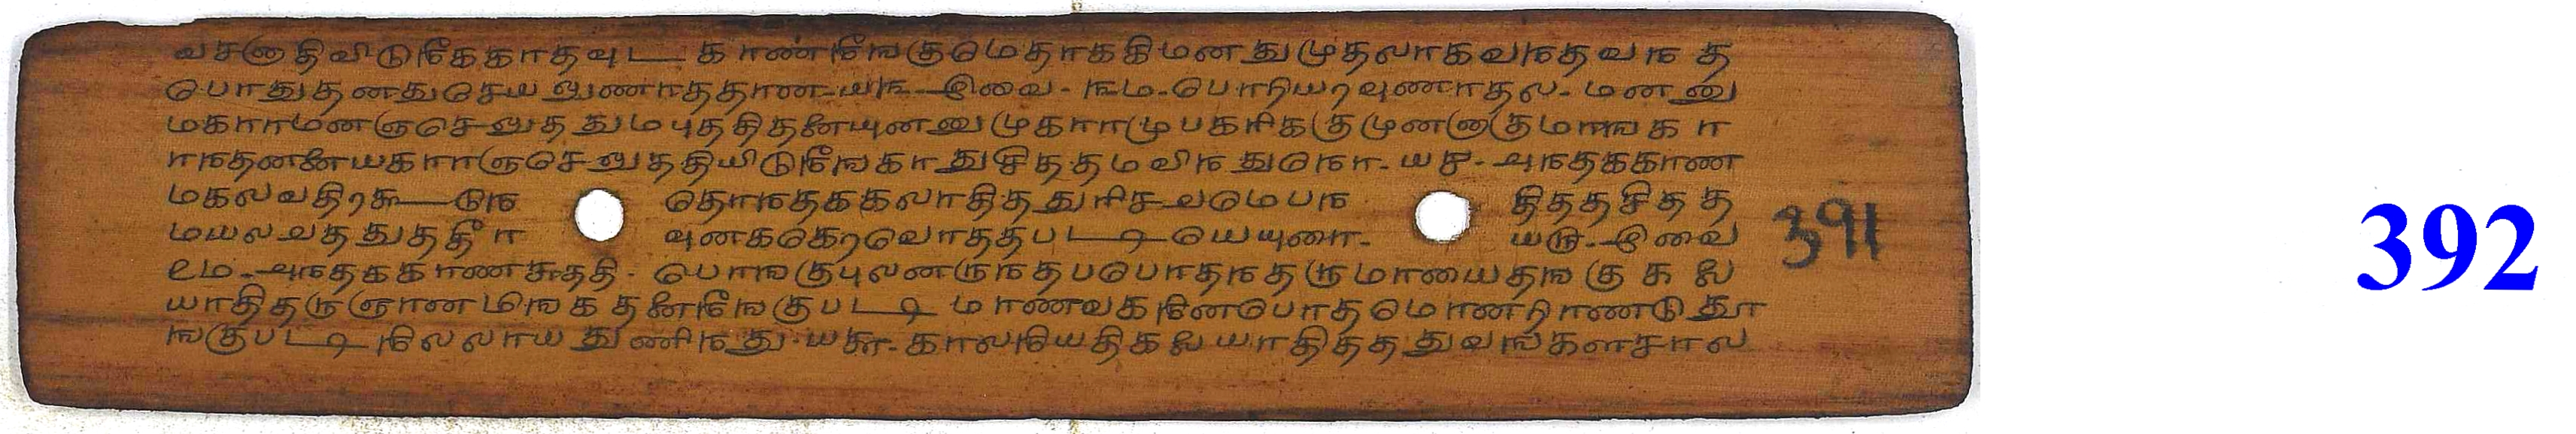 வசனாதிவிடுநீகேகாதவுட காண்நீஙகுமெதாககிமனதுமுதலாகவநதவந த
பொதுதனதுசெயலுணாததான-யங-இவை-ஙம-பொறியரவுணாதல-மனனு
மகாாமனஞசெலுததுமபுததிதனையுனனுமுகாாமுபகரிககுமுனனாகுமாஙக ா
ாநதனனையகாாஞசெலுததியிடுநீஙகாதுசிததமவிநதுநொ-யச-அநதககாண
மகலவதிரசு டுந தொநதககலாதிததுரிசவமெபந திததசித த
மயலவததுததீ ா வுனகககெறவொததபடடியெயுணா- யரு-இவை
உம-அநதககாணசுததி-பொஙகுபுலனருநதபபொதநதருமாயைதஙகு க லை
யாதிதருஞானமிஙக தனைநீஙகுபடடி மாணவகனினைபொதமொணறாணடு தூ
ஙகுபடடி நிலலாய துணிநது-யசு-காலநியெதிகலையாதிதததுவஙகளசால
391
392